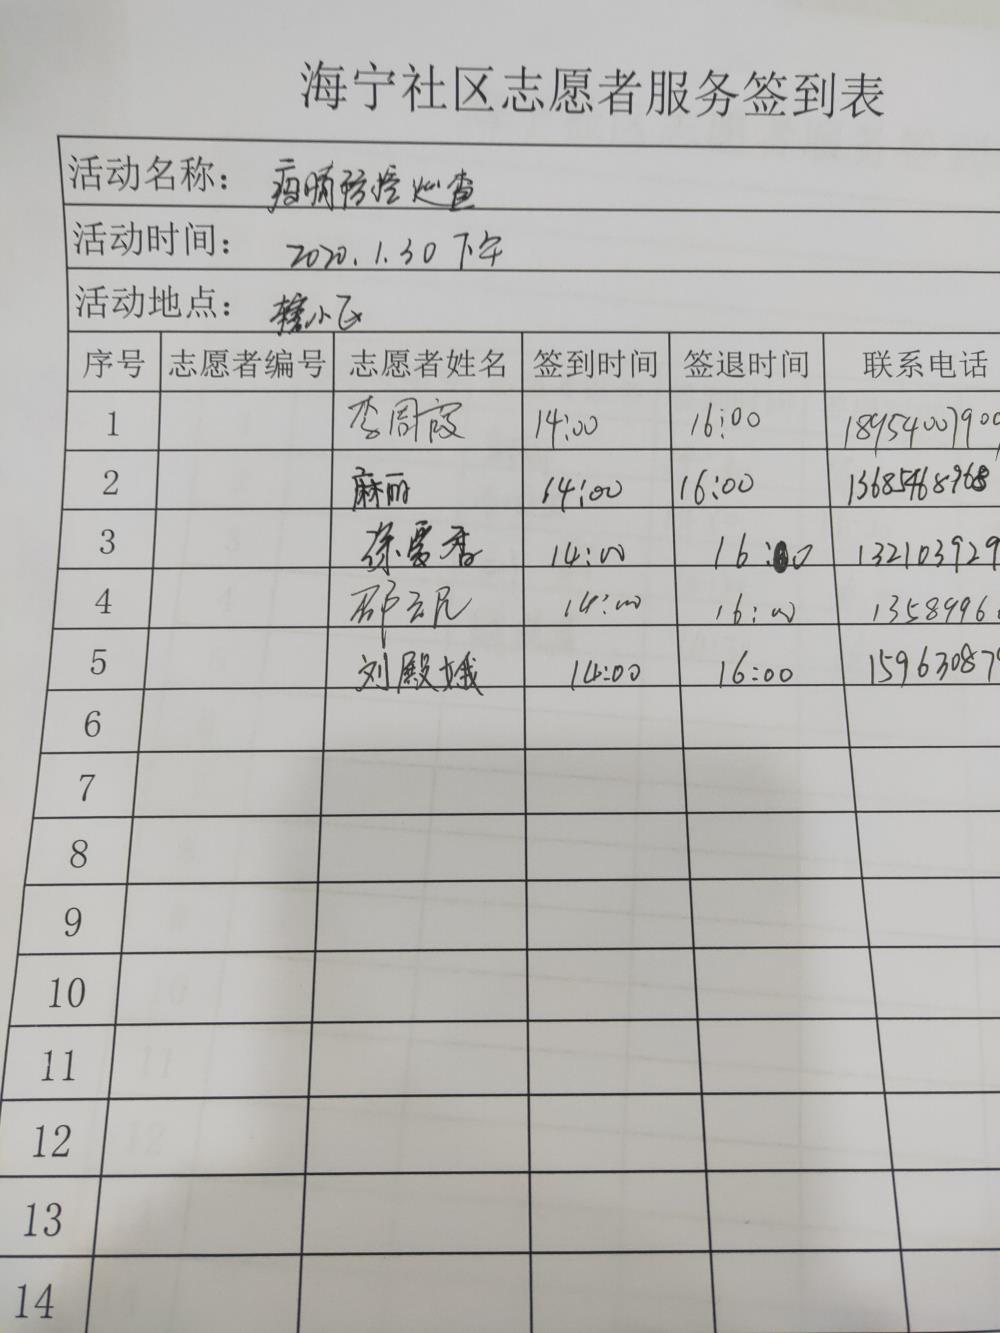 海宁社区志愿者服务签到表
活动名称：疫情防控
活动时间：2020.1.30 下午
活动地点：辖小区
序号 志愿者编号 志愿者姓名 签到时间 签退时间 联系电话
1 李周霞 14:00 16:00 18954007900
2 麻丽 14:00 16:00 13685468968
3 徐爱香 14:00 16:00 132103929
4 邵云凡 14:00 16:00 1358996
5 刘殿娥 14:00 16:00 159630879
6
7
8
9
10
11
12
13
14